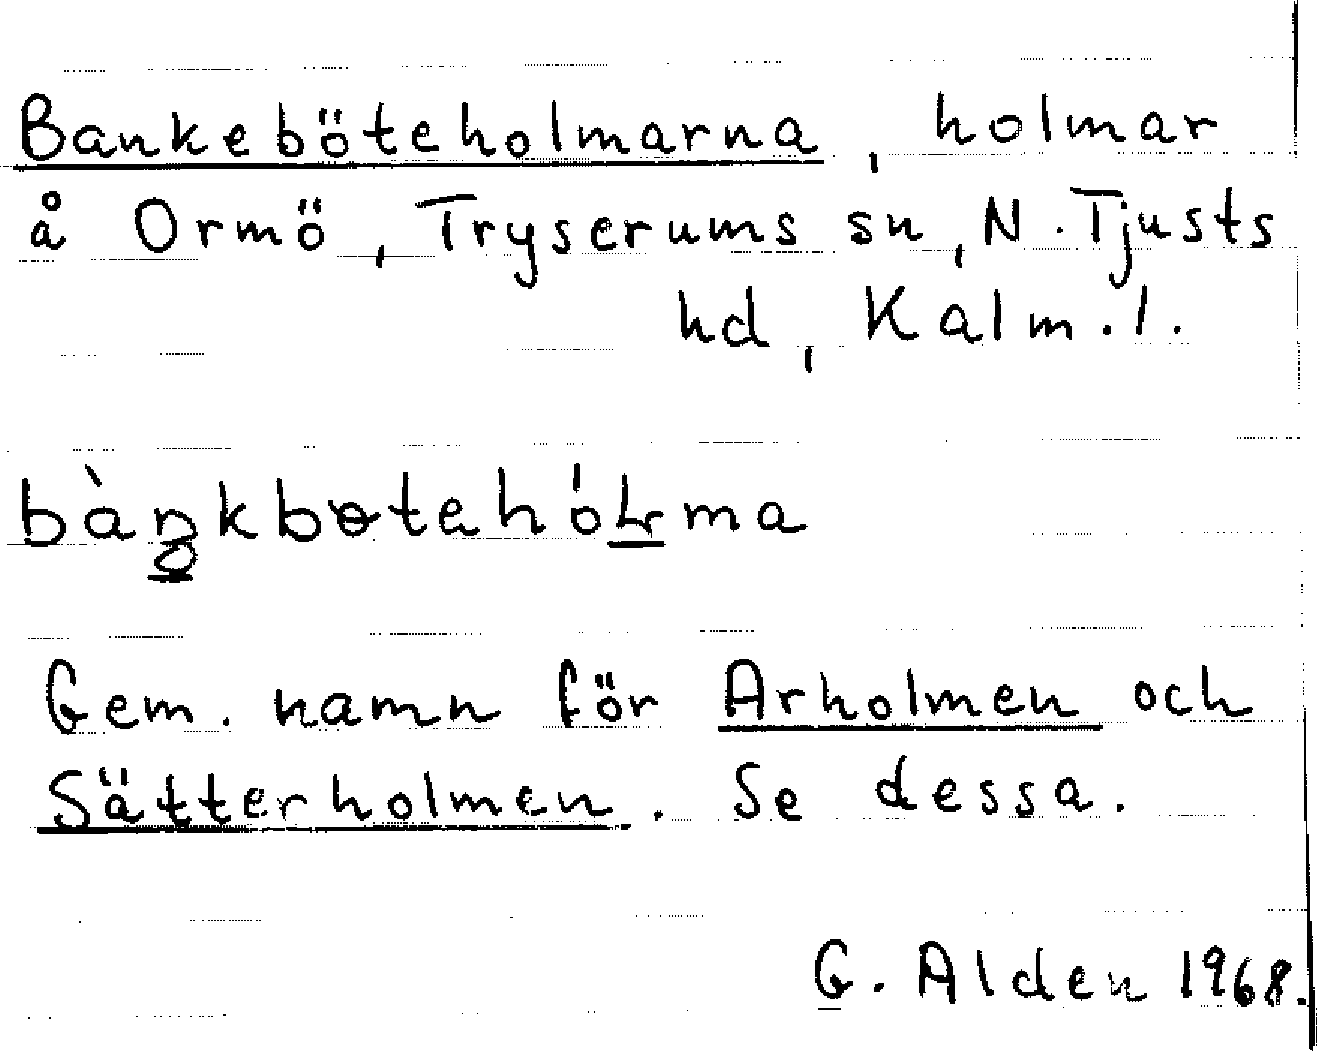 Bankeböteholmarna, holmar
å Ormö, Tryserums sn, N. Tjusts
hd, Kalm. l.
Gem. namn för Arholmen och
Sätterholmen. Se dessa.
G. Alden 1968.